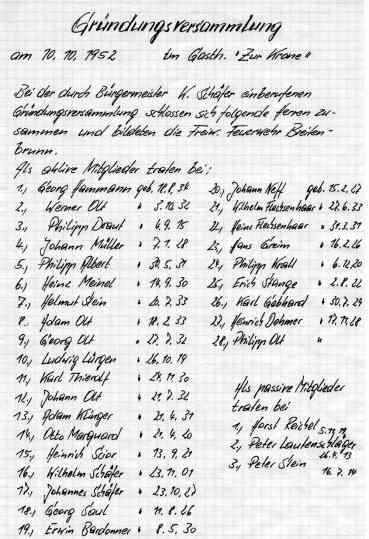 Gründungsversammlung
am 10.10.1952 im Gasth. "Zur Krone"
Bei der durch Bürgermeister W. Schäfer einberufenen
Gründungsversammlung schlossen sich folgende Herren zu-
sammen und bildeten die Freiw. Feuerwehr Breiten-
brunn.
Als aktive Mitglieder traten bei:
1., Georg Hammann geb. 18.8.34
2., Werner Olt " 5.10.32
3., Philipp Draut " 4.9.15
4., Johann Müller " 7.1.28
5., Philipp Albert " 30.5.31
6., Heinz Meinel " 14.9.30
7., Helmut Stein " 20.7.33
8., Adam Olt " 18.2.33
9., Georg Olt " 27.7.32
10., Ludwig Lürgen " 26.10.19
11., Karl Thierolf " 24.11.30
12., Johann Olt " 21.7.32
13., Adam Klinger " 21.4.31
14., Otto Marquard " 21.4.20
15., Heinrich Scior " 13.9.21
16., Wilhelm Schäfer " 23.11.01
17., Johannes Schäfer " 23.10.27
18., Georg Saul " 11.8.26
19., Erwin Bardonner " 8.5.30
20., Johann Neff geb. 15.2.27
21., Wilhelm Fleckenhaar " 27.6.23
22., Heinz Fleckenhaar " 31.3.31
23., Hans Greim " 16.2.26
24., Philipp Krall " 6.12.20
25., Erich Stange " 2.8.22
26., Karl Gebhard " 30.7.29
27., Heinrich Dehmer " 17.11.28
28., Philipp Olt "
Als passive Mitglieder
traten bei
1., Horst Reichel 5.11.19
2., Peter Lautenschläger
26.4.13
3., Peter Stein
16.7.14